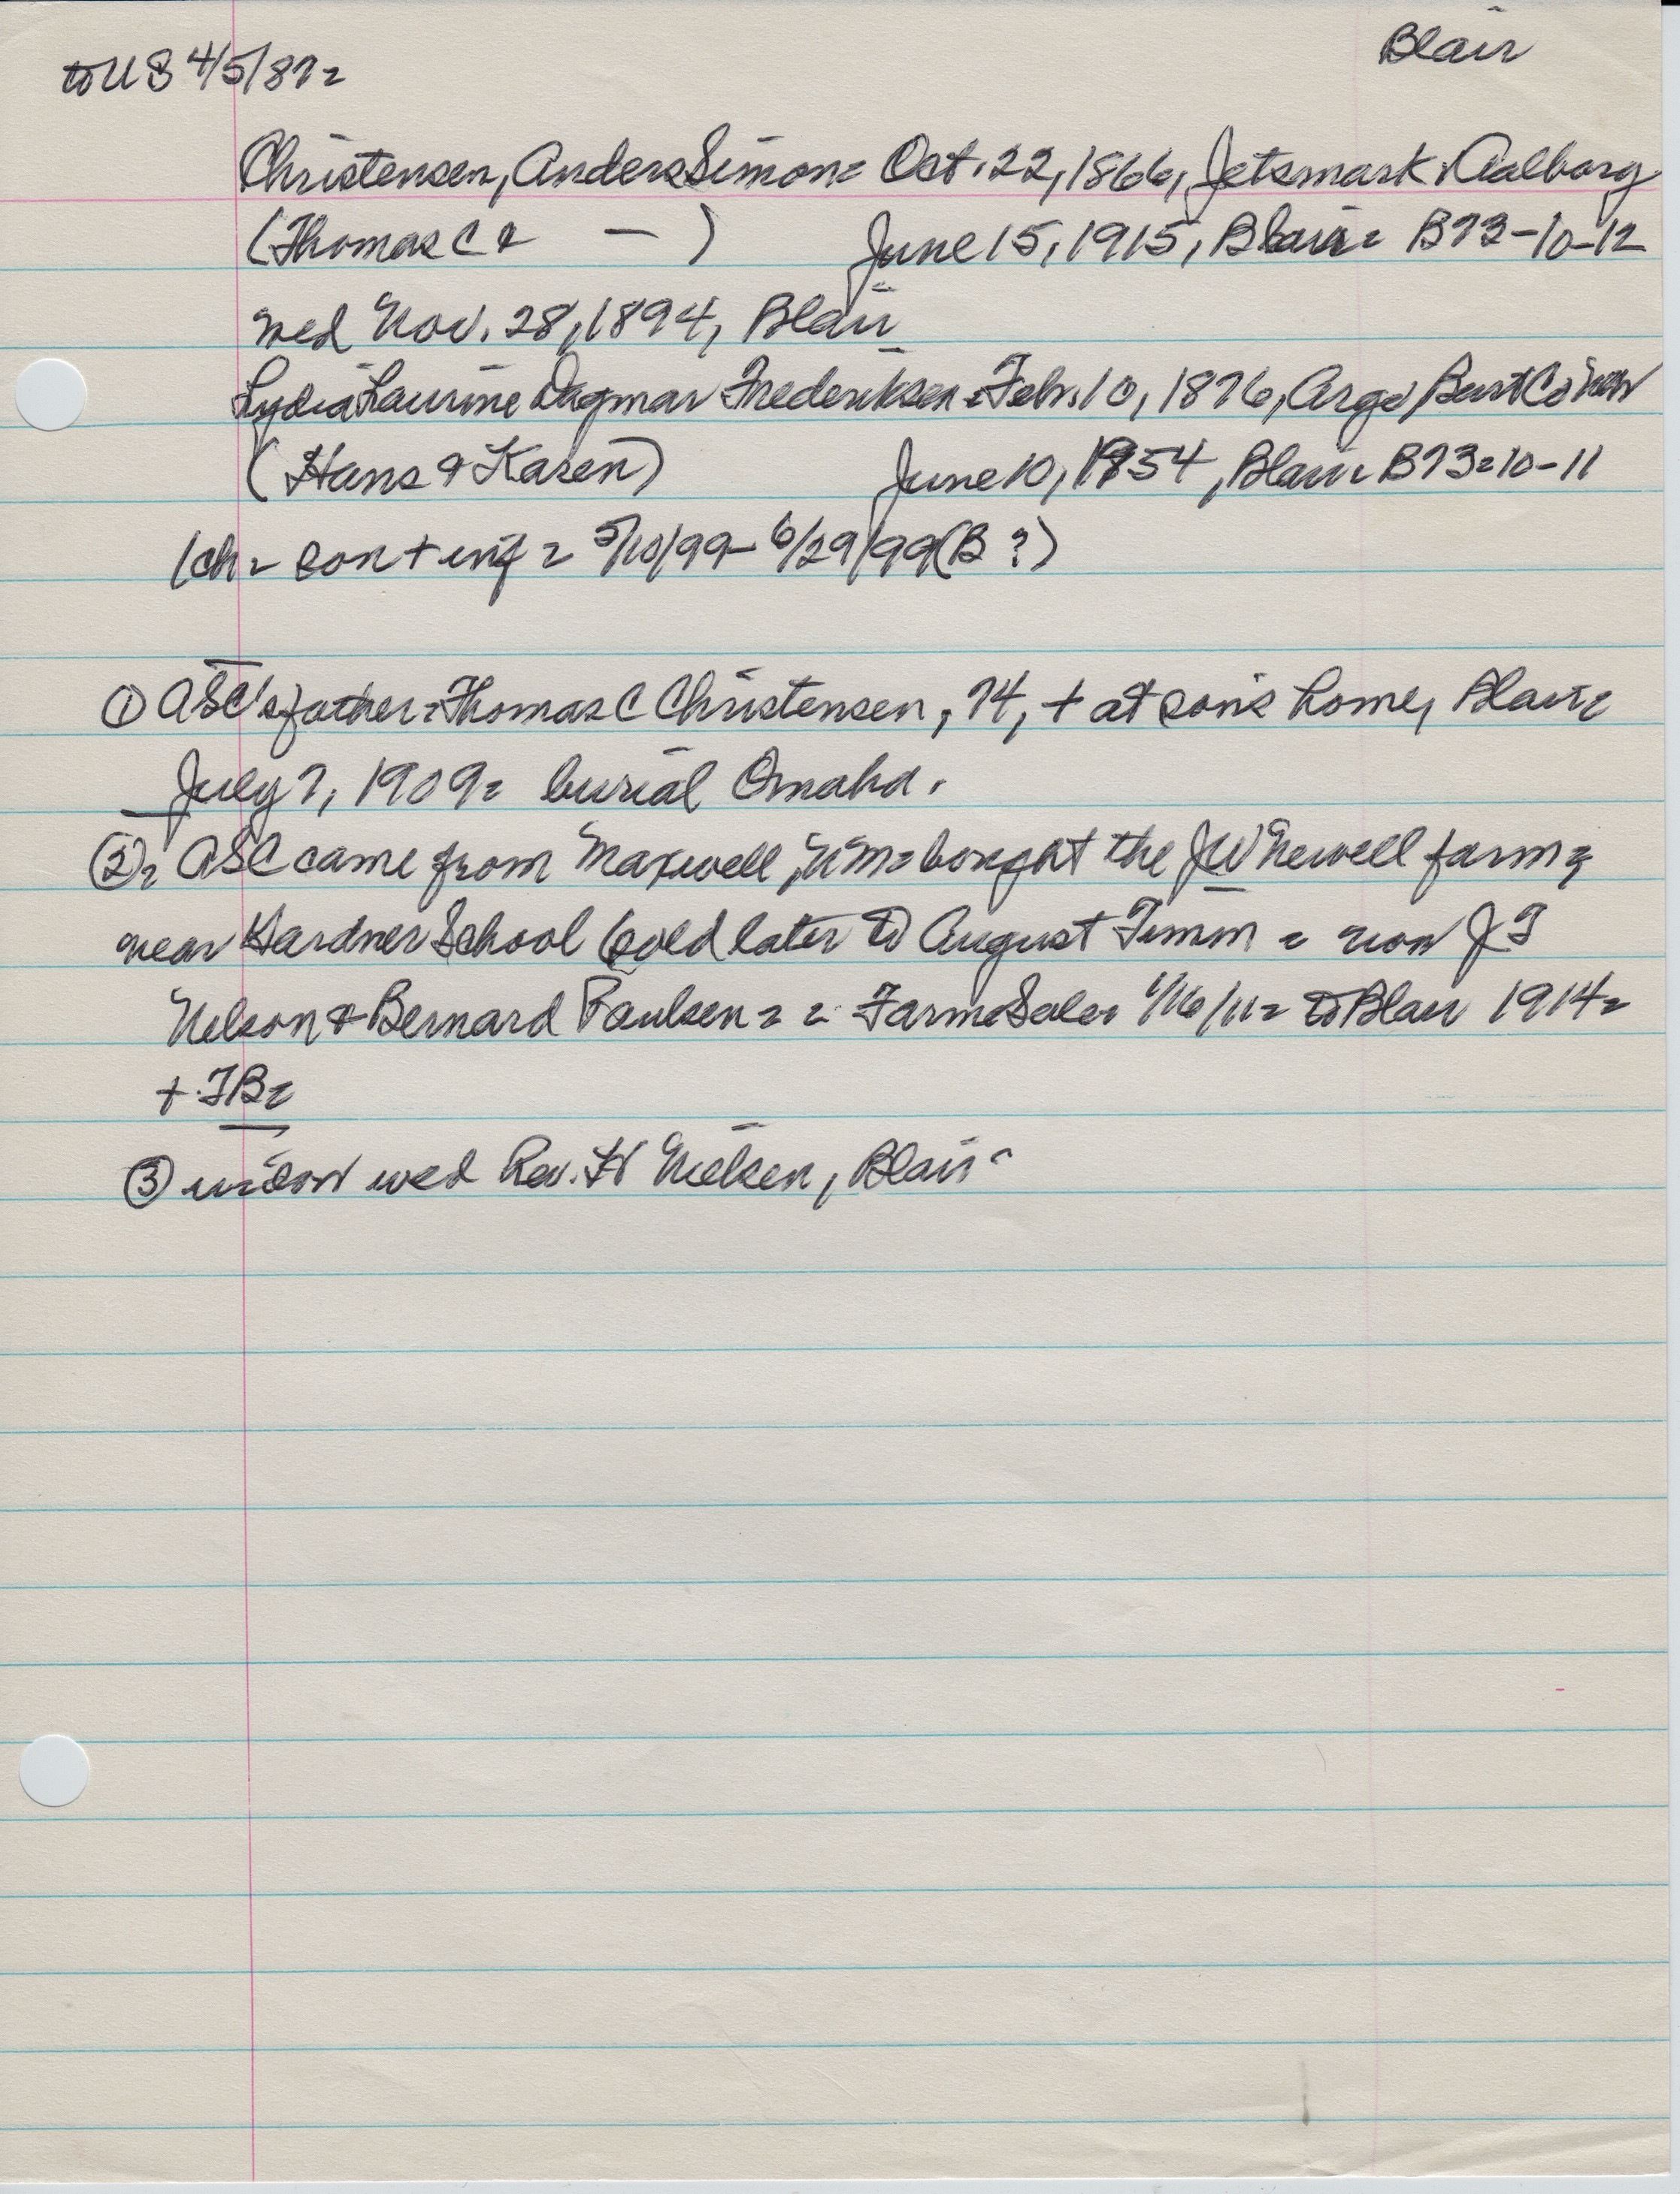 to US 4/5/87=
Blair
Christensen, Anders Simon= Oct. 22, 1866, Jetsmark, Aalborg
(Thomas C & — ) June 15, 1915, Blair= B73-10-12
wed Nov. 28, 1894, Blair
Lydia Laurine Dagmar Frederiksen= Feb. 10, 1876, Argo, Burt Co
(Hans & Karen) June 10, 1954, Blair= B73=10-11
1ch= son + inf = 5/10/99- 6/29/99 (B ?)
① ASC's father= Thomas C Christensen, 74, + at son's home, Blair=
July 7, 1909= burial Omaha.
②= ASC came from Maxwell, NM= bought the JW Newell farm=
near Gardner School (sold later to August Timm = now J J
Nelson & Bernard Paulsen= = Farm Sale= 1/16/11= to Blair 1914=
+ TB=
③ widow wed Rev. H Nielsen, Blair